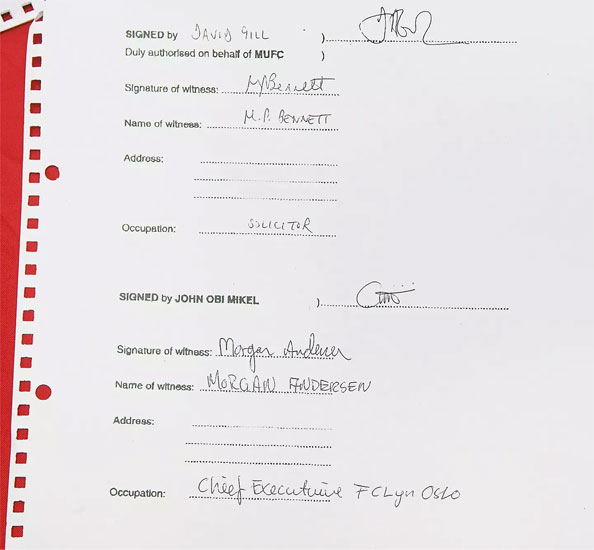 SIGNED by DAVID GILL )
Duly authorised on behalf of MUFC )
Signature of witness: M P Bennett
Name of witness: M.P. BENNETT
Address:
Occupation: SOLICITOR
SIGNED by JOHN OBI MIKEL )
Signature of witness: Morgan Andersen
Name of witness: MORGAN ANDERSEN
Address:
Occupation: Chief Executuive FC Lyn Oslo